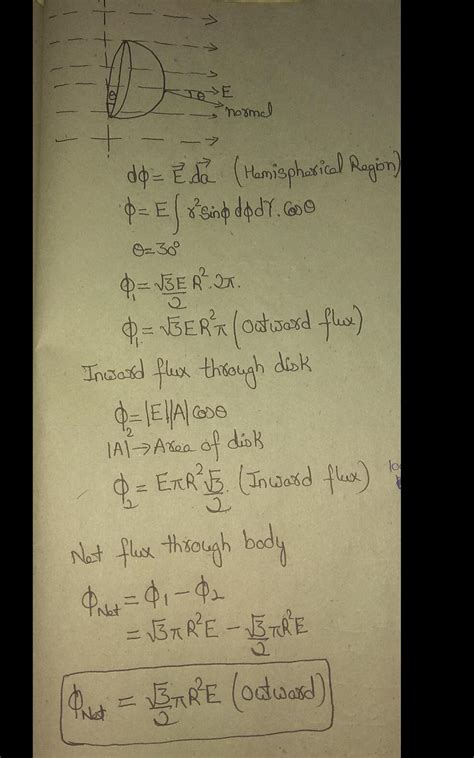 θ
θ → E
normal
dϕ = E⃗.da⃗ (Hemispherical Region)
ϕ = E ∫ r² sinϕ dϕ dr. Cosθ
θ = 30°
ϕ₁ = √3E/2 R². 2π.
ϕ₁ = √3ER²π (outward flux)
Inward flux through disk
ϕ₂ = |E||A| cosθ
|A| → Area of disk
ϕ₂ = EπR² √3/2. (Inward flux)
Net flux through body
ϕNet = ϕ₁ - ϕ₂
= √3πR²E - √3/2 πR²E
ϕNet = √3/2 πR²E (outward)